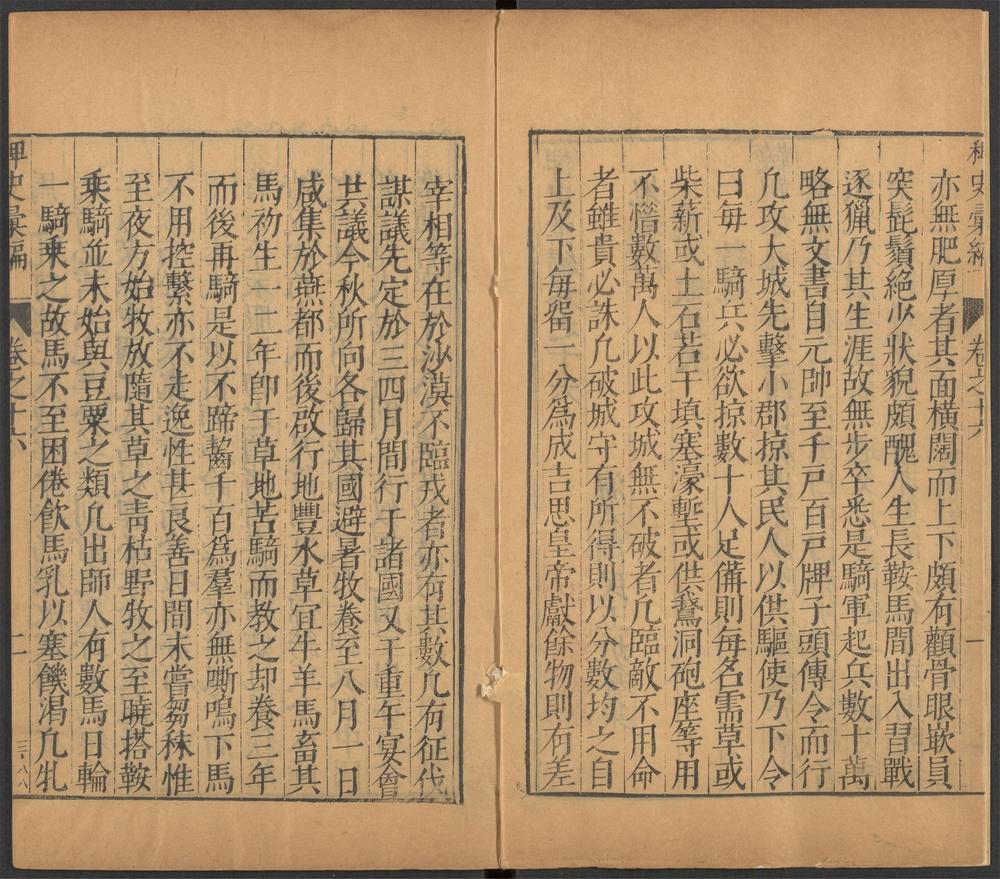 稗史彙編
卷之十六
一
亦無肥厚者其面橫闊而上下頗有顴骨眼嵌員
突髭鬚絕少狀貌頗醜人生長鞍馬間出入習戰
逐獵乃其生涯故無步卒悉是騎軍起兵數十萬
略無文書自元帥至千戸百戸牌子頭傳令而行
凢攻大城先擊小郡掠其民人以供驅使乃下令
曰每一騎兵必欲掠數十人足備則每名需草或
柴薪或土石若干填塞濠塹或供鵞洞砲座等用
不惜數萬人以此攻城無不破者凢臨敵不用命
者雖貴必誅凢破城守有所得則以分數均之自
上及下每畱一分為成吉思皇帝獻餘物則有差
宰相等在於沙漠不臨戎者亦有其數凢有征伐
謀議先定於三四月間行于諸國又于重午宴會
共議今秋所向各歸其國避暑牧養至八月一日
咸集於燕都而後啟行地豐水草宜牛羊馬畜其
馬初生一二年卽于草地苦騎而教之却養三年
而後再騎是以不蹄齧千百為羣亦無嘶鳴下馬
不用控繫亦不走逸性甚良善日間未嘗芻秣惟
至夜方始牧放隨其草之靑枯野牧之至曉搭鞍
乘騎並未始與豆粟之類凢出師人有數馬日輪
一騎乘之故馬不至困倦飲馬乳以塞饑渴凢牝
稗史彙編
卷之十六
二
三百八